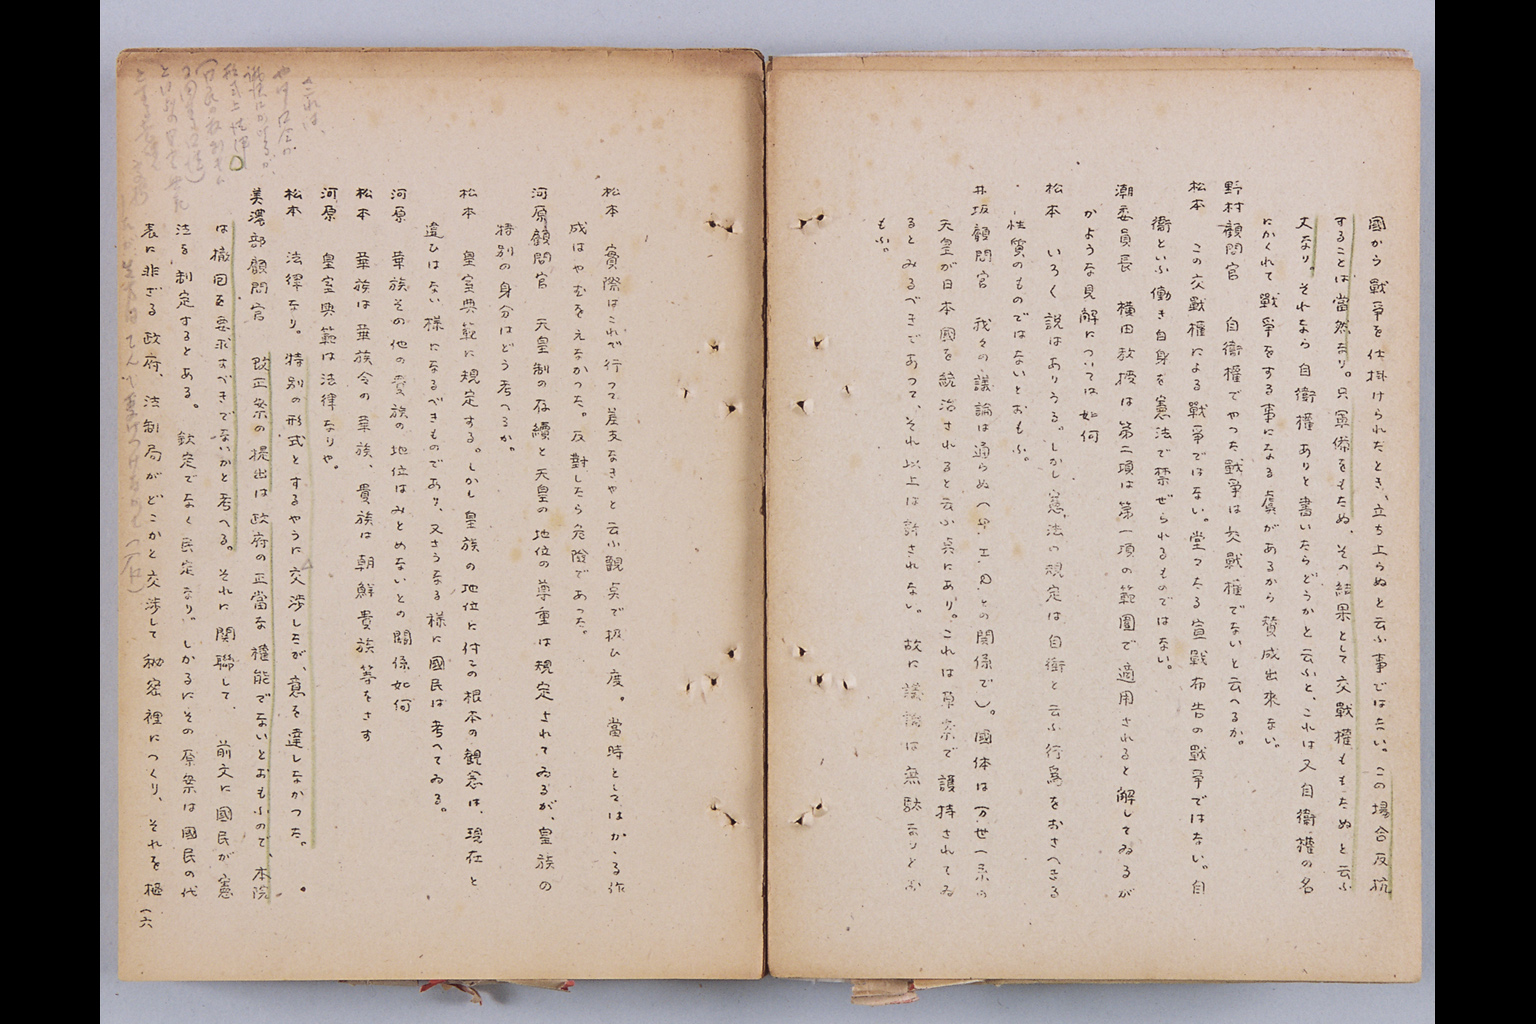 國から戰爭を仕掛けられたとき、立ち上らぬと云ふ事ではない。この場合反抗
することは當然なり。只軍備をもたぬ、その結果として交戰權ももたぬと云ふ
丈なり。それなら自衛權ありと書いたらどうかと云ふと、これは又自衛權の名
にかくれて戰爭をする事になる虞があるから賛成出來ない。
野村顧問官　自衛權でやつた戰爭は交戰權でないと云へるか。
松本　この交戰權による戰爭ではない。堂々たる宣戰布告の戰爭ではない。自
衛といふ働き自身を憲法で禁ぜられるものではない。
潮委員長　横田教授は第二項は第一項の範圍で適用されると解してゐるが
かような見解については如何
松本　いろく説はありうる。しかし憲法の規定は自衛と云ふ行爲をおさへきる
性質のものではないとおもふ。
井坂顧問官　我々の議論は通らぬ(でしとの関係で)。國体は万世一系の
天皇が日本國を統治されると云ふ点にあり。これは草案で護持されてゐ
るとみるべきであつて、それ以上は許されない。故に議論は無駄なりとお
もふ。
松本　實際はこれで行つて差支なきやと云ふ観点で扱ひ度。當時としてはかゝる作
成はやむをえなかつた。反對したら危險であつた。
河原顧問官　天皇制の存續と天皇の地位の尊重は規定されてゐるが、皇族の
特別の身分はどう考へるか。
松本　皇室典範に規定する。しかし皇族の地位に付ての根本の観念は、現在と
違ひはない様になるべきものであり、又さうなる様に國民は考へてゐる。
河原　華族その他の貴族の地位はみとめないとの關係如何
松本　華族は華族令の華族、貴族は朝鮮貴族等をさす
河原　皇室典範は法律なりや。
松本　法律なり。特別の形式とするやうに交渉したが、意を達しなかつた。
美濃部顧問官　改正案の提出は政府の正當な權能でないとおもふので、本院
は撤回を要求すべきでないかと考へる。それに関聯して、前文に國民が憲
法を制定するとある。欽定でなく民定なり。しかるにその原案は國民の代
表に非ざる政府、法制局がどこかと交渉して秘密裡につくり、それを樞
(六
これは、